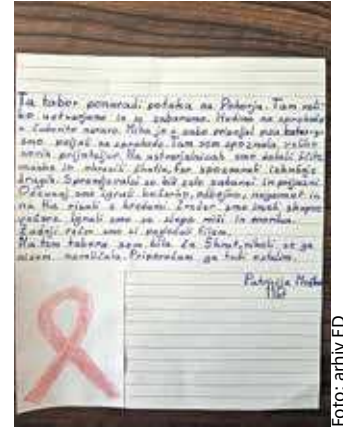 Ta tabor ponavadi poteka na Pohorju. Tam veli-
ko ustvarjamo in se zabavamo. Hodimo na sprehode
in čuvamo naravo. Miha je s sabo pripeljal psa
smo peljali na sprehode. Tam sem spoznala veliko
novih prijateljev. Na ustvarjalnicah smo delali
maske in okrasili
drugih. Spremljevalci so bili zelo zabavni in prijazni.
Občasno smo igrali košarko, odbojko, nogomet in
na tla risali s kredami. Zvečer smo imeli skupne
večere. Igrali smo se slepe miši in
Zadnji večer smo si pogledali film.
Na tem taboru sem bila že 5krat, nikoli se ga
nisem naveličala. Priporočam ga tudi ostalim.
Patricija
11 let
Foto: arhiv ED